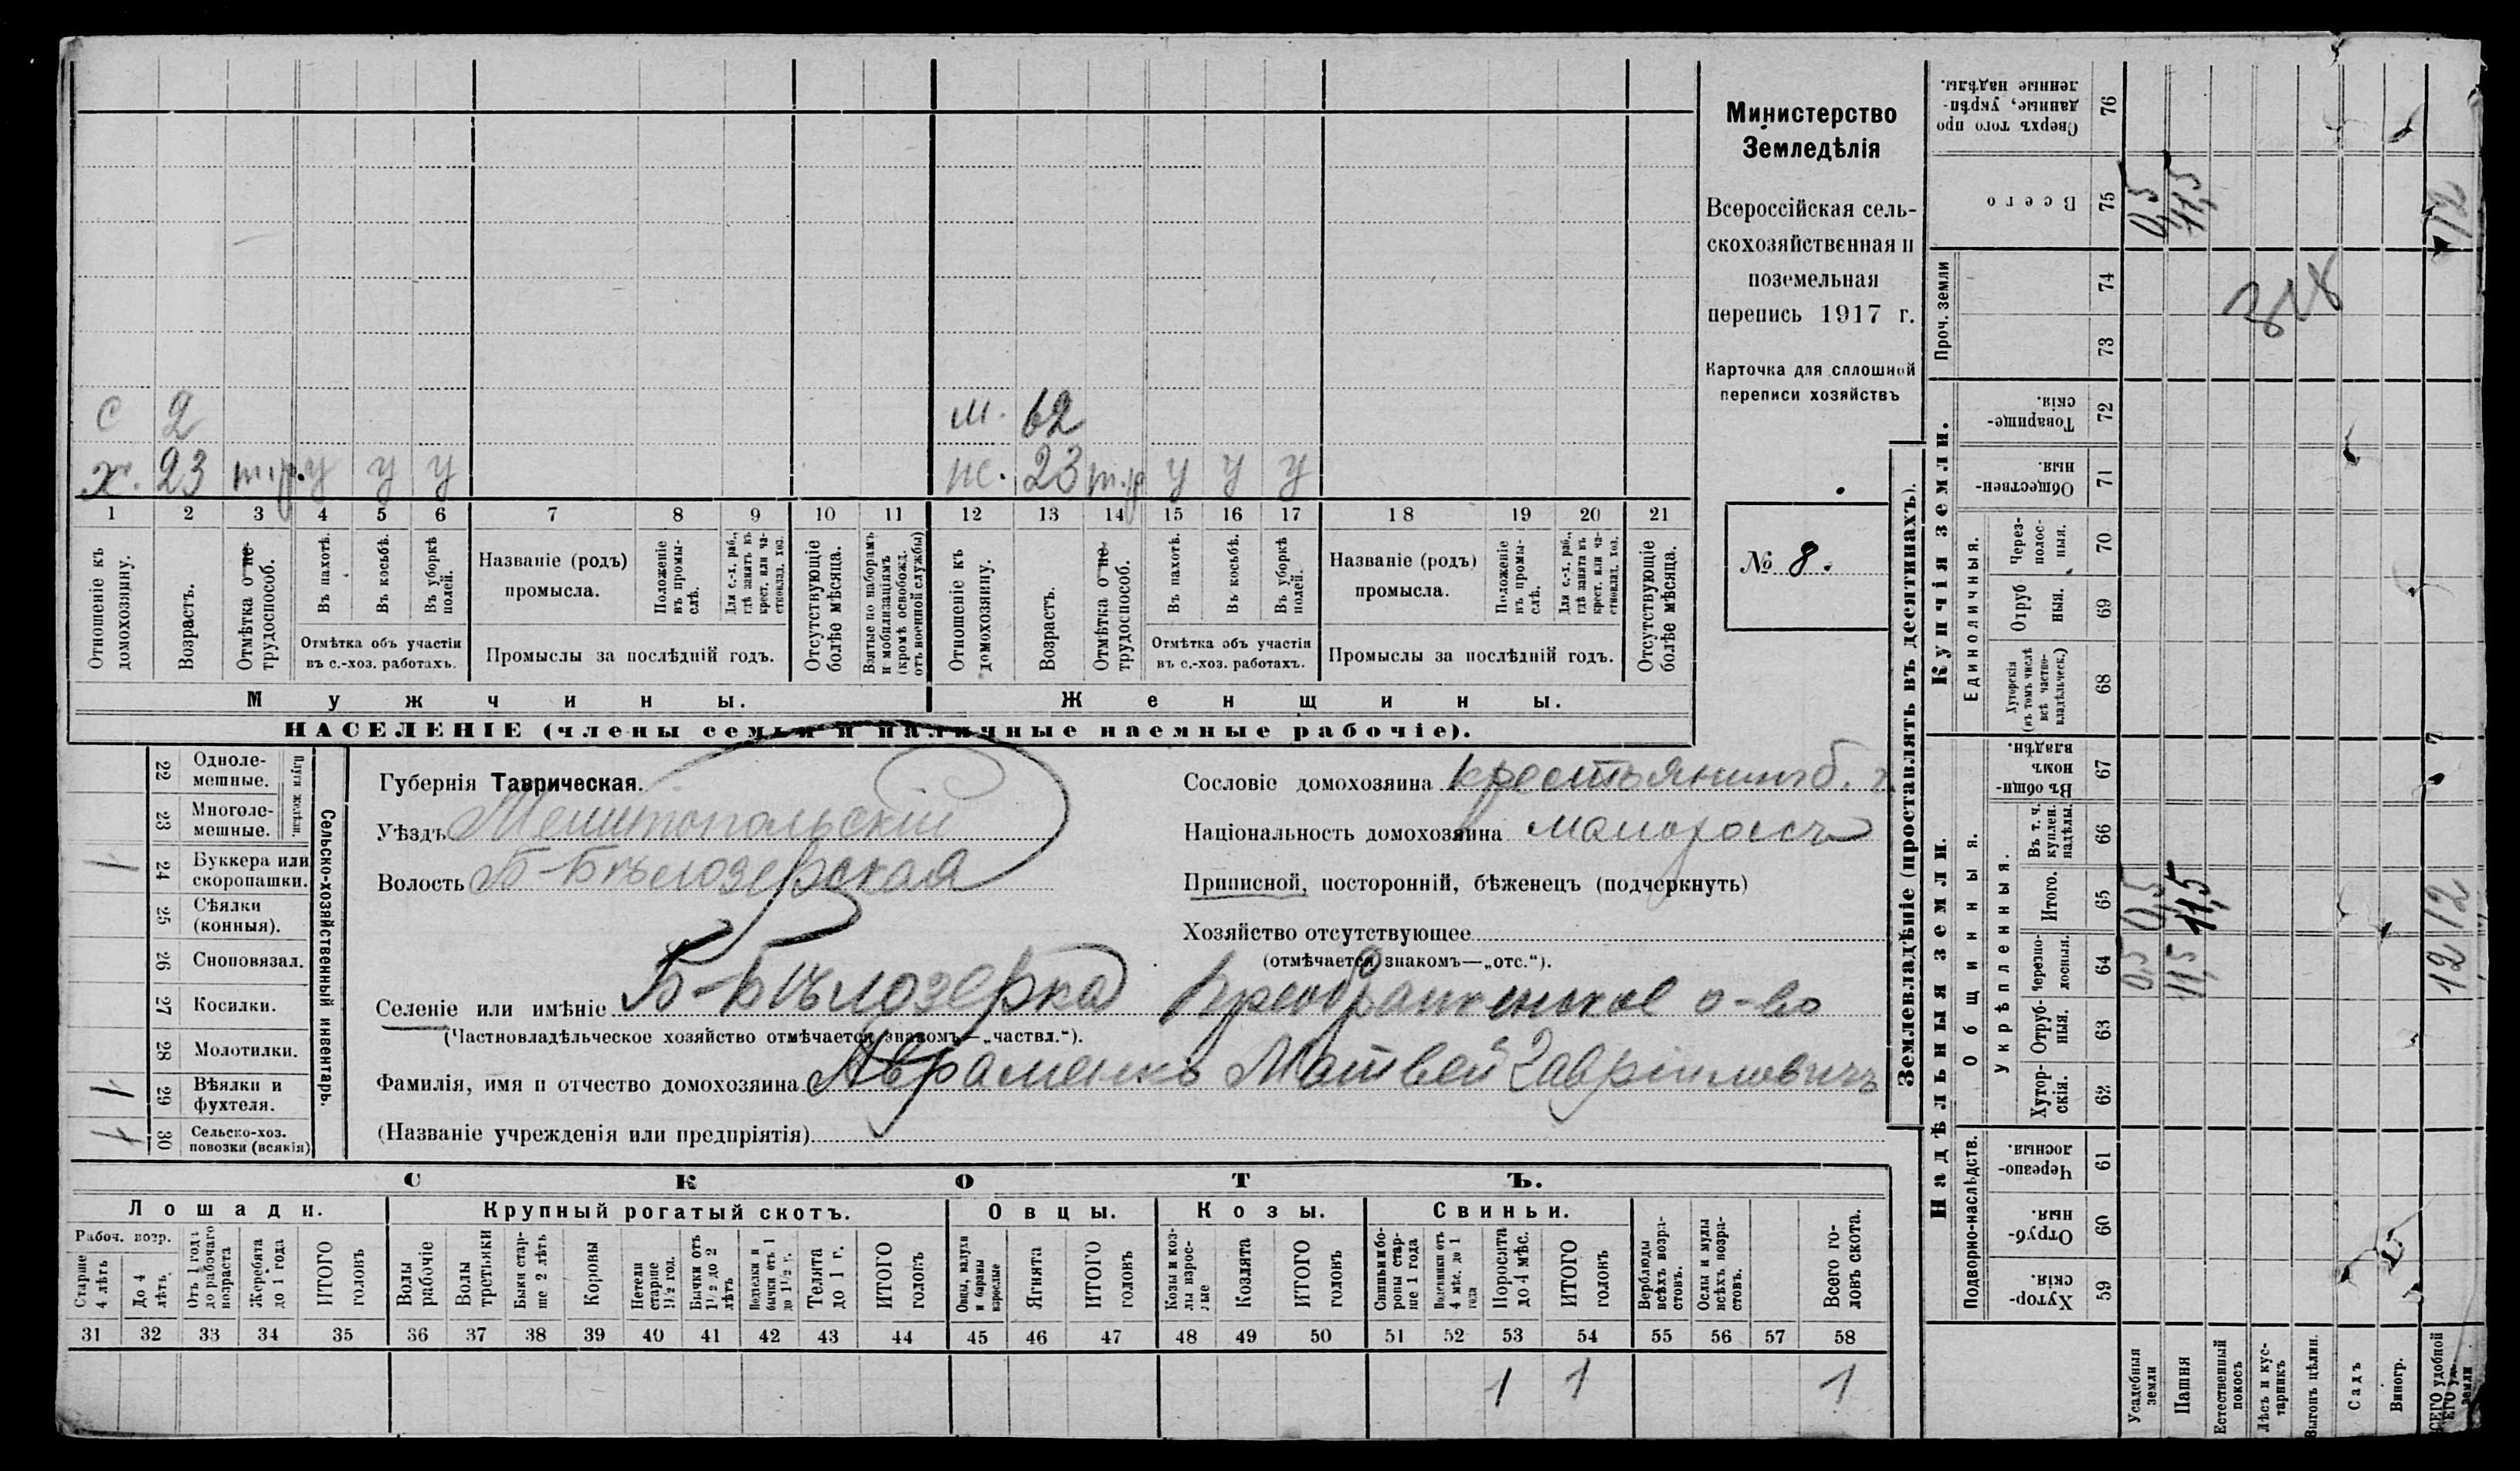 с 2 м. 62
х. 23 т.р. у у у ж. 23 т.р у у у
1 2 3 4 5 6 7 8 9 10 11 12 13 14 15 16 17 18 19 20 21
Отношеніе къ домохозяину.
Возрастъ.
Отмѣтка о не-трудоспособ.
Въ пахотѣ.
Въ косьбѣ.
Въ уборкѣ полей.
Отмѣтка объ участіи
въ с.-хоз. работахъ.
Названіе (родъ)
промысла.
Положеніе въ промы-слѣ.
Для с.-х. раб., гдѣ занятъ въ крест. или ча-стновлад. хоз.
Промыслы за послѣдній годъ.
Отсутствующіе болѣе мѣсяца.
Взятые по наборамъ и мобилизаціямъ (кромѣ освобожд. отъ военной службы)
Отношеніе къ домохозяину.
Возрастъ.
Отмѣтка о не-трудоспособ.
Въ пахотѣ.
Въ косьбѣ.
Въ уборкѣ полей.
Отмѣтка объ участіи
въ с.-хоз. работахъ.
Названіе (родъ)
промысла.
Положеніе въ промы-слѣ.
Для с.-х. раб., гдѣ занята въ крест. или ча-стновлад. хоз.
Промыслы за послѣдній годъ.
Отсутствующіе болѣе мѣсяца.
Мужчины. Женщины.
НАСЕЛЕНІЕ (члены семьи и наличные наемные рабочіе).
Министерство
Земледѣлія
Всероссійская сель-
скохозяйственная и
поземельная
перепись 1917 г.
Карточка для сплошной
переписи хозяйствъ
№ 8.
Сельско-хозяйственный инвентарь.
Плуги желѣзн.
22 Одноле-мешные.
23 Многоле-мешные.
1 24 Буккера или скоропашки.
25 Сѣялки (конныя).
26 Сноповязал.
27 Косилки.
28 Молотилки.
1 29 Вѣялки и фухтеля.
1 30 Сельско-хоз. повозки (всякія)
Губернія Таврическая.
Уѣздъ Мелитопольскій
Волость Б-Бѣлозерская
Селеніе или имѣніе Б-Бѣлозерка Преображенское о-во
(Частновладѣльческое хозяйство отмѣчается знакомъ—„частвл.“).
Фамилія, имя и отчество домохозяина Авраменко Матвей Гавріиловичъ
(Названіе учрежденія или предпріятія)
Сословіе домохозяина крестьянинъ б.
Національность домохозяина малороссъ
Приписной, посторонній, бѣженецъ (подчеркнуть)
Хозяйство отсутствующее
(отмѣчается знакомъ—„отс.“).
СКОТЪ.
Лошади. Крупный рогатый скотъ. Овцы. Козы. Свиньи.
Рабоч. возр.
Старше 4 лѣтъ
До 4 лѣтъ.
Отъ 1 года до рабочаго возраста
Жеребята до 1 года
ИТОГО головъ
Волы рабочіе
Волы третьяки
Быки стар-ше 2 лѣтъ
Коровы
Нетели старше 1½ год.
Бычки отъ 1½ до 2 лѣтъ
Подтелки и бычки отъ 1 до 1½ г.
Телята до 1 г.
ИТОГО головъ
Овцы, валухи и бараны взрослые
Ягнята
ИТОГО головъ
Козы и коз-лы взрос-лые
Козлята
ИТОГО головъ
Свиньи и бо-ровы стар-ше 1 года
Подсвинки отъ 4 мѣс. до 1 года
Поросята до 4 мѣс.
ИТОГО головъ
Верблюды всѣхъ возра-стовъ.
Ослы и мулы всѣхъ возра-стовъ.
Всего го-ловъ скота.
31 32 33 34 35 36 37 38 39 40 41 42 43 44 45 46 47 48 49 50 51 52 53 54 55 56 57 58
1 1 1
Землевладѣніе (проставлять въ десятинахъ).
Надѣльныя земли.
Купчія земли.
Проч. земли
Подворно-наслѣдств.
Общинныя.
Укрѣпленныя.
Единоличныя.
Сверхъ того про данные, укрѣп-ленные надѣлы. 76
Всего 75 0,5 11,5 12
74
73
Товарище-скія. 72
Обществен-ныя. 71
Через-полос-ныя. 70
Отруб ныя. 69
Хуторскія (въ томъ числѣ всѣ частно-владѣльческ.) 68
Въ общи-номъ владѣн. 67
Въ т. ч. куплен. надѣлы. 66
Итого. 65 0,5 11,5 12
Черезпо-лосныя. 64 0,5 11,5 12
Отруб-ныя. 63
Хутор-скія. 62
Черезпо-лосныя. 61
Отруб-ныя. 60
Хутор-скія. 59
Усадебныя земли
Пашня
Естественный покосъ
Лѣсъ и кус-тарникъ
Выгонъ цѣлин.
Садъ
Виногр.
ВСЕГО удобной земли